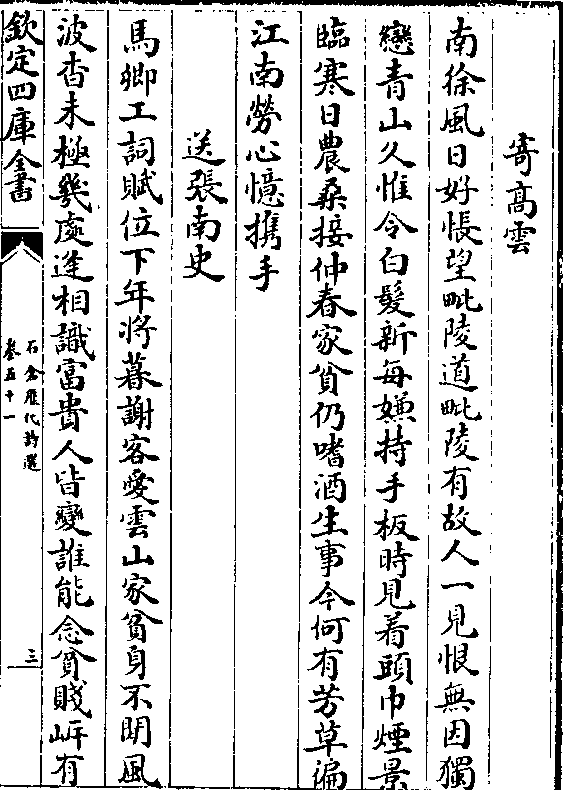 寄高雲
南徐風日好悵望毗陵道毗陵有故人一見恨無因獨
戀青山久惟令白髮新每嫌持手板時見着頭巾煙景
臨寒日農桑接仲春家貧仍嗜酒生事今何有芳草徧
江南勞心憶攜手
送張南史
馬卿工詞賦位下年將暮謝客愛雲山家貧身不閒風
波杳未極幾處逢相識富貴人皆變誰能念貧賤岍有
欽定四庫全書
石倉歷代詩選
卷五十一
三